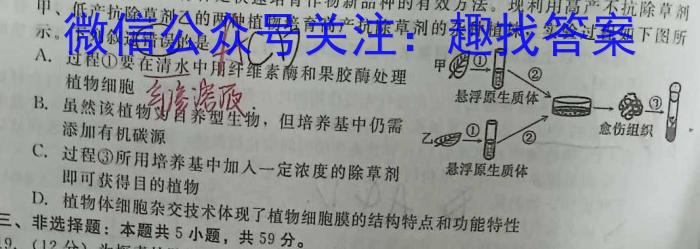 快速培育作物新品种的有效方法。现利用高产不抗除草剂
甲、低产抗除草剂乙的两种植物
产抗除草剂的
如下图所
示。
错误的是
微信公众号关注：趣找答案
A. 过程①要在清水中用纤维素酶和果胶酶处理
植物细胞
高渗溶液
B. 虽然该植物为自养型生物，但培养基中仍需
添加有机碳源
C. 过程③所用培养基中加入一定浓度的除草剂
即可获得目的植物
D. 植物体细胞杂交技术体现了植物细胞膜的结构特点和功能特性
甲
①
②
③
悬浮原生质体
愈伤组织
乙
①
②
悬浮原生质体
三、非选择题：本题共5小题，共59分。
19. (12分)